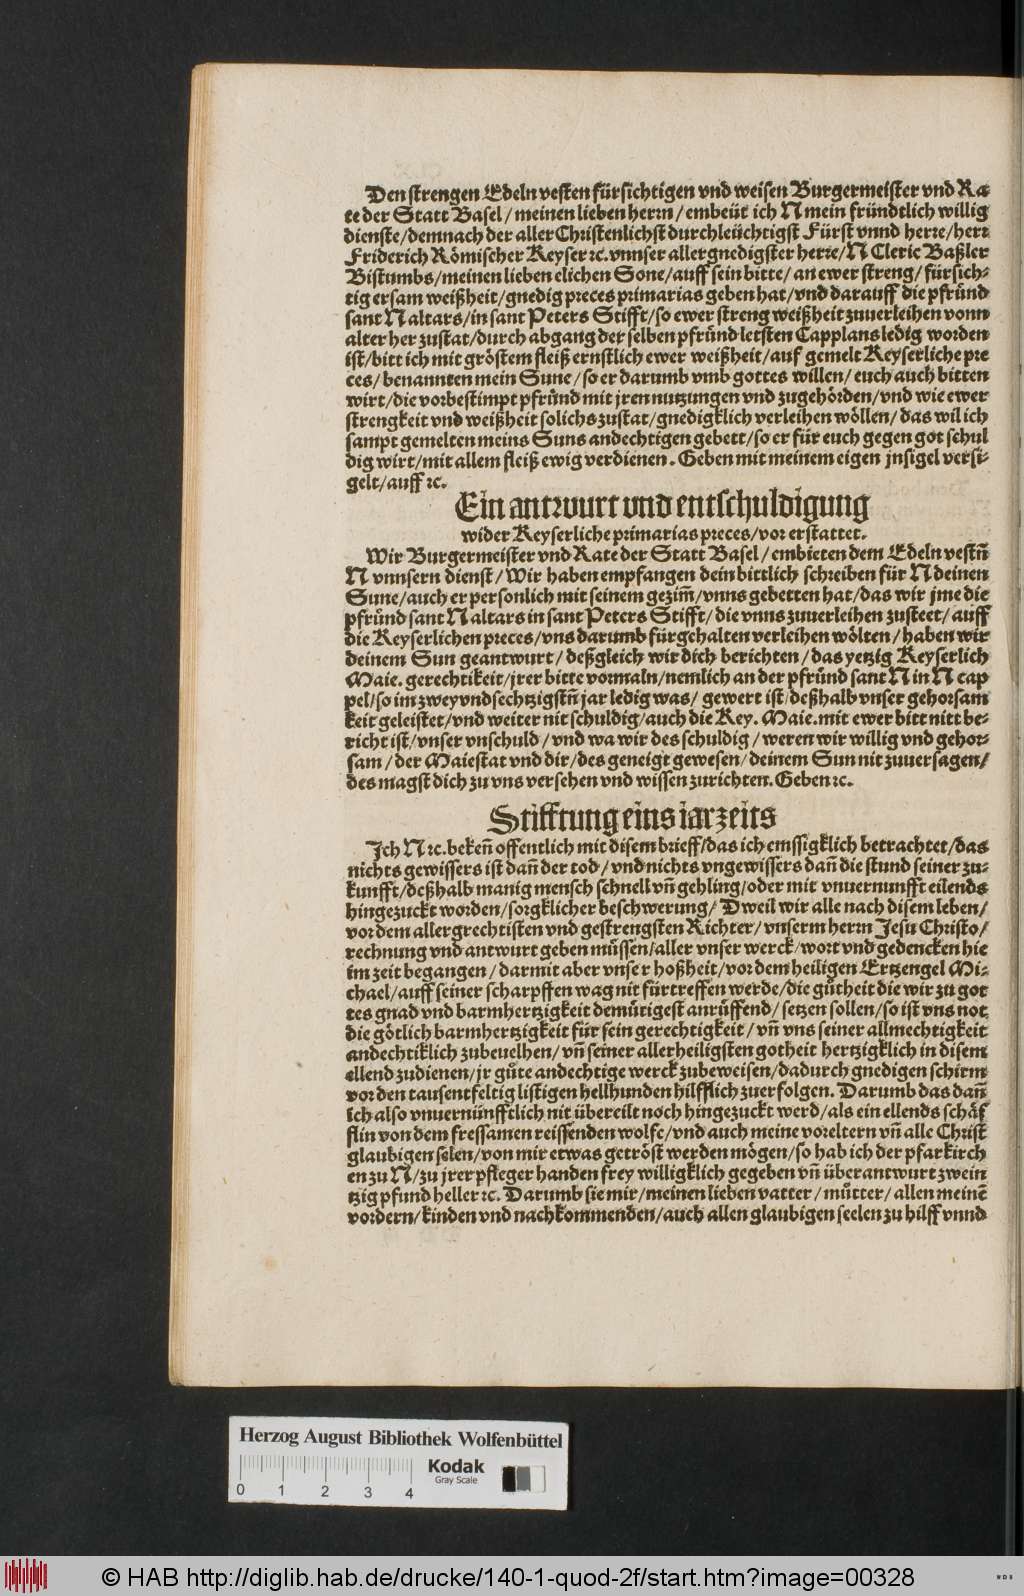 Den strengen Edeln vesten fürsichtigen vnd weisen Burgermeister vnd Ra-
te der Statt Basel / meinen lieben herrn / embeüt ich N mein fründtlich willig
dienste/demnach der aller Christenlichst durchleüchtigst Fürst vnnd herre/herr
Friderich Römischer Keyser ꝛc. vnnser allergnedigster herre/N Cleric Baßler
Bistumbs/meinen lieben elichen Sone/auff sein bitte/ an ewer streng/ fürsich-
tig ersam weißheit/gnedig preces primarias geben hat/vnd darauff die pfründ
sant N altars/in sant Peters Stifft/so ewer streng weißheit zuuerleihen vonn
alter her zustat/durch abgang der selben pfründ letsten Capplans ledig worden
ist/bitt ich mit gröstem fleiß ernstlich ewer weißheit/auf gemelt Keyserliche pre
ces/ benannten mein Sune /so er darumb vmb gottes willen/ euch auch bitten
wirt/die vorbestimpt pfründ mit jren nutzungen vnd zugehörden/vnd wie ewer
strengkeit vnd weißheit solichs zustat/gnedigklich verleihen wöllen/ das wil ich
sampt gemelten meins Suns andechtigen gebett/so er für euch gegen got schul
dig wirt/mit allem fleiß ewig verdienen. Geben mit meinem eigen jnsigel versi-
gelt/auff ꝛc.
Ein antwurt vnd entschuldigung
wider Keyserliche primarias preces/vor erstattet.
Wir Burgermeister vnd Rate der Statt Basel / embieten dem Edeln vestñ
N vnnsern dienst/Wir haben empfangen dein bittlich schreiben für N deinen
Sune/auch er personlich mit seinem gezim̃/vnns gebetten hat/das wir jme die
pfründ sant N altars in sant Peters Stifft/die vnns zuuerleihen zusteet/auff
die Keyserlichen preces/vns darumb fürgehalten verleihen wölten/haben wir
deinem Sun geantwurt/deßgleich wir dich berichten/das yetzig Keyserlich
Maie. gerechtikeit/jrer bitte vormaln/nemlich an der pfründ sant N in N cap
pel/so im zweyvndsechtzigstñ jar ledig was/ gewert ist/deßhalb vnser gehorsam
keit geleistet/vnd weiter nit schuldig/auch die Key. Maie. mit ewer bitt nitt be-
richt ist/vnser vnschuld / vnd wa wir des schuldig / weren wir willig vnd gehor-
sam / der Maiestat vnd dir/des geneigt gewesen/ deinem Sun nit zuuersagen/
des magst dich zu vns versehen vnd wissen zurichten. Geben ꝛc.
Stifftung eins iarzeits
Ich N ꝛc. bekeñ offentlich mit disem brieff/das ich emssigklich betrachtet/das
nichts gewissers ist dañ der tod / vnd nichts vngewissers dañ die stund seiner zu-
kunfft/deßhalb manig mensch schnell vñ gehling/oder mit vnuernunfft eilends
hingezuckt worden/sorgklicher beschwerung/ Dweil wir alle nach disem leben/
vor dem allergrechtisten vnd gestrengsten Richter/vnserm herrn Jesu Christo/
rechnung vnd antwurt geben müssen/aller vnser werck/wort vnd gedencken hie
im zeit begangen / darmit aber vnser hoßheit/vor dem heiligen Ertzengel Mi-
chael/auff seiner scharpffen wag nit fürtreffen werde/die gütheit die wir zu got
tes gnad vnd barmhertzigkeit demütigest anrüffend/ setzen sollen/so ist vns not
die götlich barmhertzigkeit für sein gerechtigkeit / vñ vns seiner allmechtigkeit
andechtiklich zubeuelhen/vñ seiner allerheiligsten gotheit hertzigklich in disem
ellend zudienen/jr güte andechtige werck zubeweisen/dadurch gnedigen schirm
vor den tausentfeltig listigen hellhunden hilfflich zuerfolgen. Darumb das dañ
ich also vnuernünfftlich nit übereilt noch hingezuckt werd/als ein ellends schäf
flin von dem fressamen reissenden wolfe/vnd auch meine voreltern vñ alle Christ
glaubigen selen/von mir etwas getröst werden mögen/so hab ich der pfarkirch
en zu N/zu jrer pfleger handen frey willigklich gegeben vñ überantwurt zwein
tzig pfund heller ꝛc. Darumb sie mir/meinen lieben vatter / mütter/ allen meinẽ
vordern/kinden vnd nachkommenden/auch allen glaubigen seelen zu hilff vnnd
Herzog August Bibliothek Wolfenbüttel
Kodak
Gray Scale
0 1 2 3 4
© HAB http://diglib.hab.de/drucke/140-1-quod-2f/start.htm?image=00328